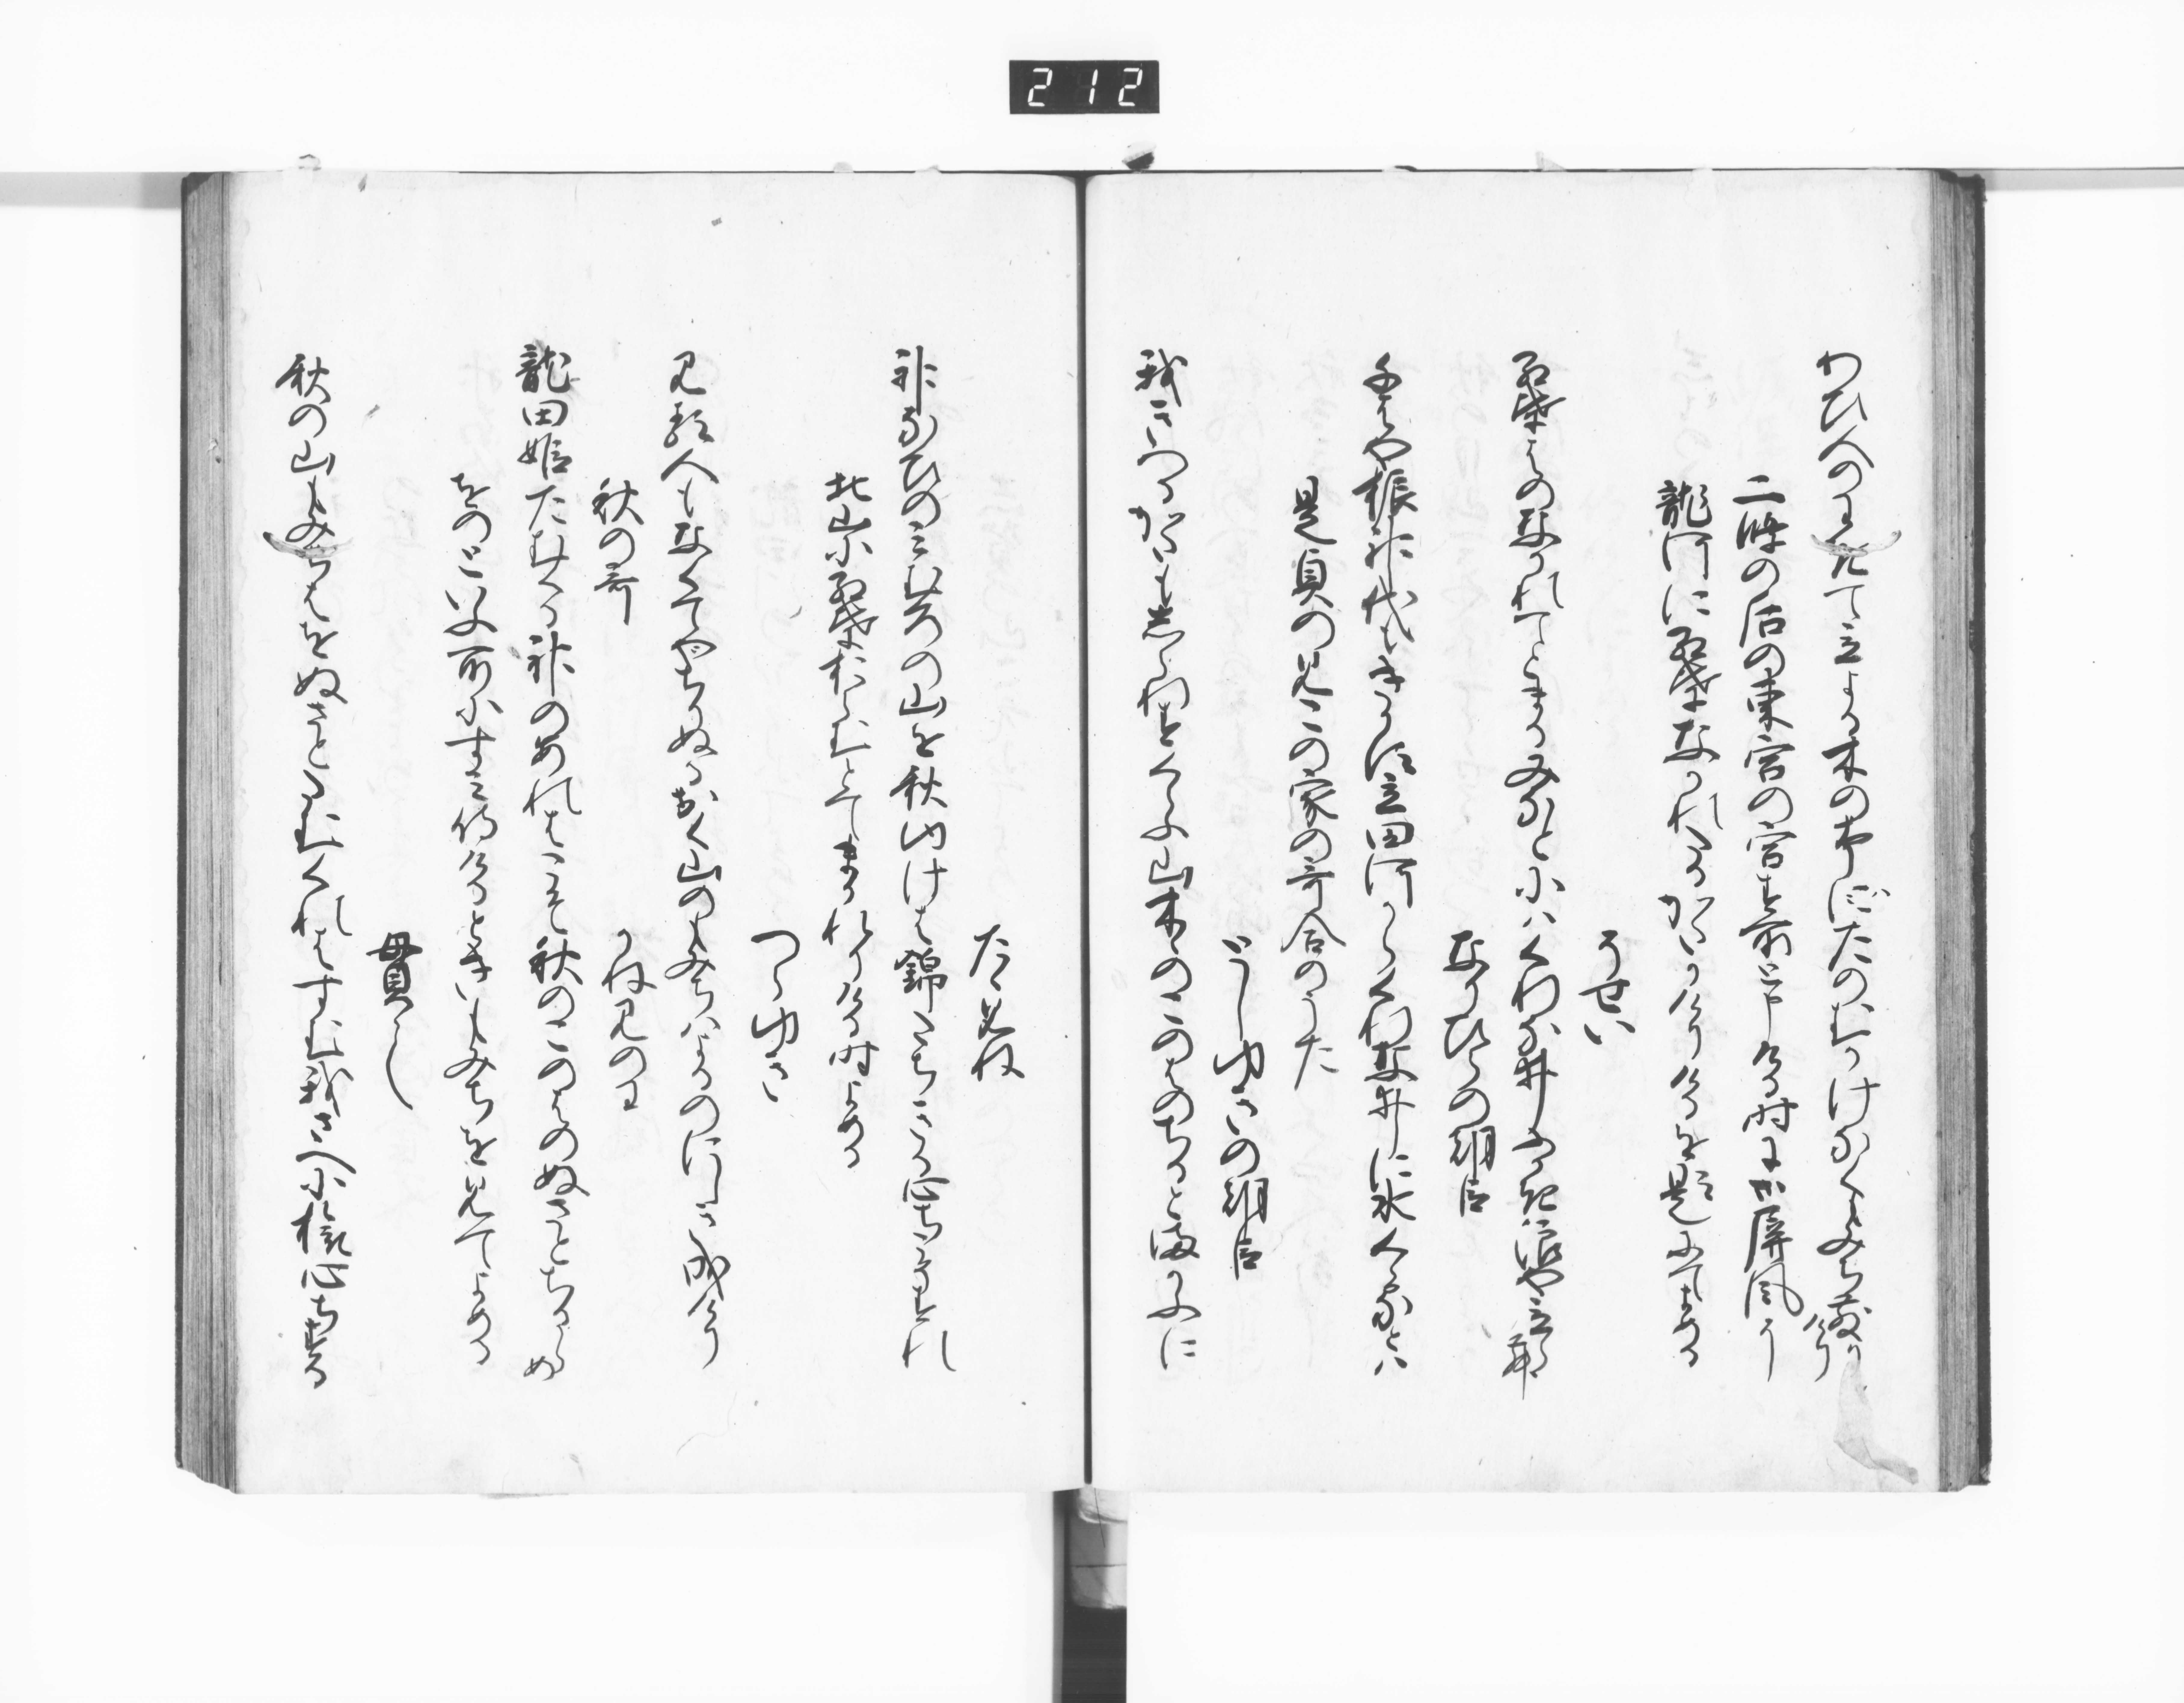 212
わひ人のわきて立よる木の本はたのむかけなくもみち散けり
二條の后の東宮の宮す所と申ける時に御屏風に
龍田河に紅葉なかれたるかたをかけりけるを題にてよめる
そせい
紅葉はのなかれてとまるみなとには紅ふかき浪や立覧
なりひらの朝臣
千はや振神代もきかす立田河からくれなゐに水くゝるとは
是貞のみこの家の哥合のうた
としゆきの朝臣
我きつるかたも志られすくらふ山木ゝのこのはのちるとまかふに
たゝみね
神なひのみむろの山を秋ゆけは錦たちきる心ちこそすれ
北山に紅葉おらむとてまかれりける時よめる
つらゆき
見る人もなくてちりぬるおく山のもみちはよるのにしき成けり
秋の哥
かねみの王
龍田姫たむくる神のあれはこそ秋のこのはのぬさとちるらめ
をのといふ所にすみ侍けるときもみちを見てよめる
貫之
秋の山もみちをぬさとたむくれはすむ我さへに旅心ちする